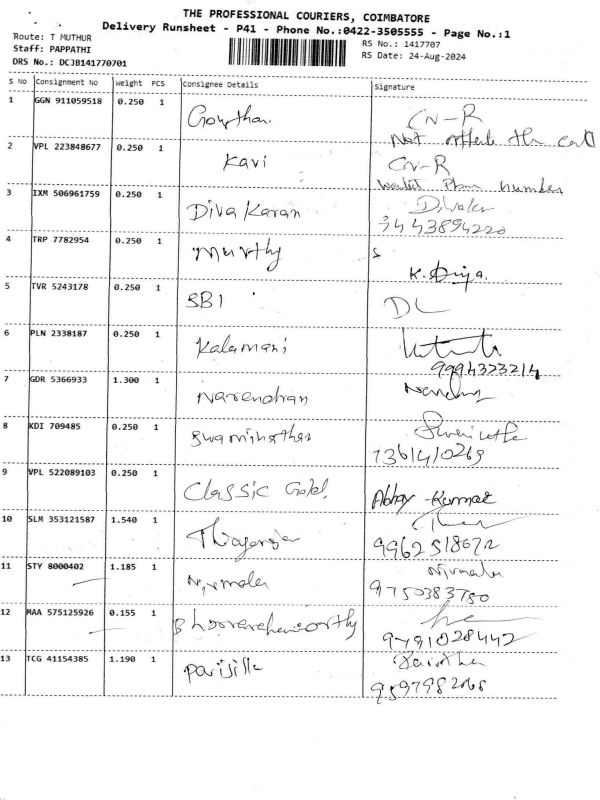 THE PROFESSIONAL COURIERS, COIMBATORE
Delivery Runsheet - P41 - Phone No.:0422-3505555 - Page No.:1
Route: T MUTHUR
Staff: PAPPATHI
DRS No.: DCJB141770701
RS No.: 1417707
RS Date: 24-Aug-2024
S No Consignment No Weight PCS Consignee Details Signature
1 GGN 911059518 0.250 1 Gowthan. CN-R
Not the call
2 VPL 223848677 0.250 1 Kavi CN-R
number
3 IXM 506961759 0.250 1 Divakaran Divakar
4 TRP 7782954 0.250 1 Murthy
5 TVR 5243178 0.250 1 SBI DL
6 PLN 2338187 0.250 1 Kalamani
9994323214
7 GDR 5366933 1.300 1 Narendran
8 KDI 709485 0.250 1 Swaminathan
9 VPL 522089103 0.250 1 Classic Gold. Abhay Kumar
10 SLM 353121587 1.540 1
11 STY 8000402 1.185 1 Nirmala Nirmala
9750383750
12 MAA 575125926 0.155 1
9791028442
13 TCG 41154385 1.190 1